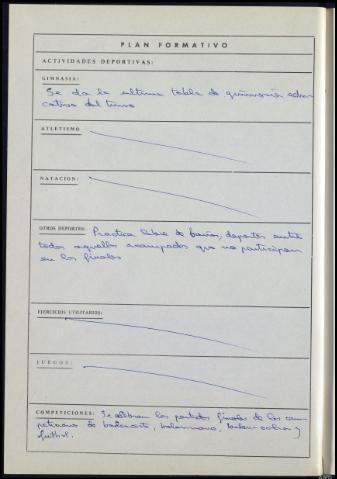 PLAN FORMATIVO
ACTIVIDADES DEPORTIVAS:
GIMNASIA:
Se da la ultima tabla de gimnasia edu-
cativa del turno
ATLETISMO
NATACION:
OTROS DEPORTES: Practica libre de baños, deportes
todos aquellos acampados que no participan
en las finales
EJERCICIOS UTILITARIOS:
JUEGOS:
COMPETICIONES: Se celebran los partidos finales de las com-
peticiones de baloncesto, balonmano, balon-volea y
futbol.